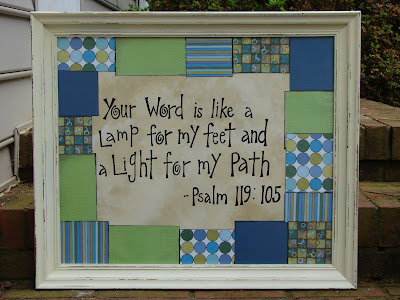 Your Word is like a
Lamp for my feet and
a Light for my Path
-Psalm 119:105